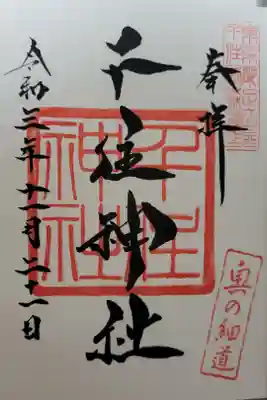 奉拝
千住神社
千住神社
奥の細道
令和三年十一月二十一日